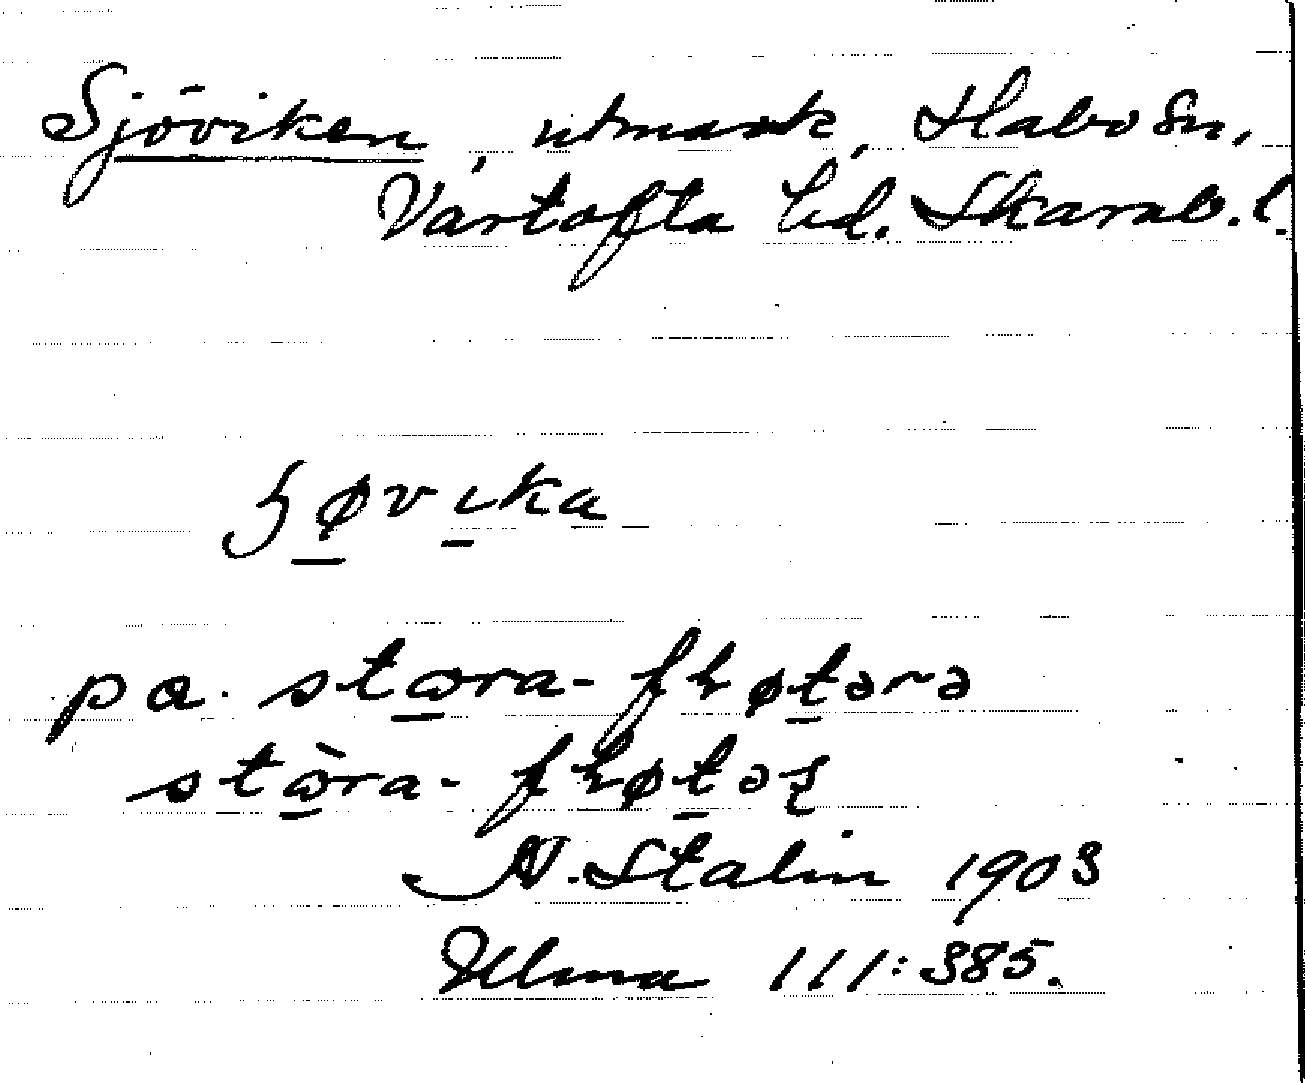 Sjöviken, utmark, Habo sn,
Vartofta hd. Skarab. l.
ʃøvika
pa. stæra-fløtərə
stæ̀ra-fløtəʃ
N. Stalin 1903
Ulma 111:385.